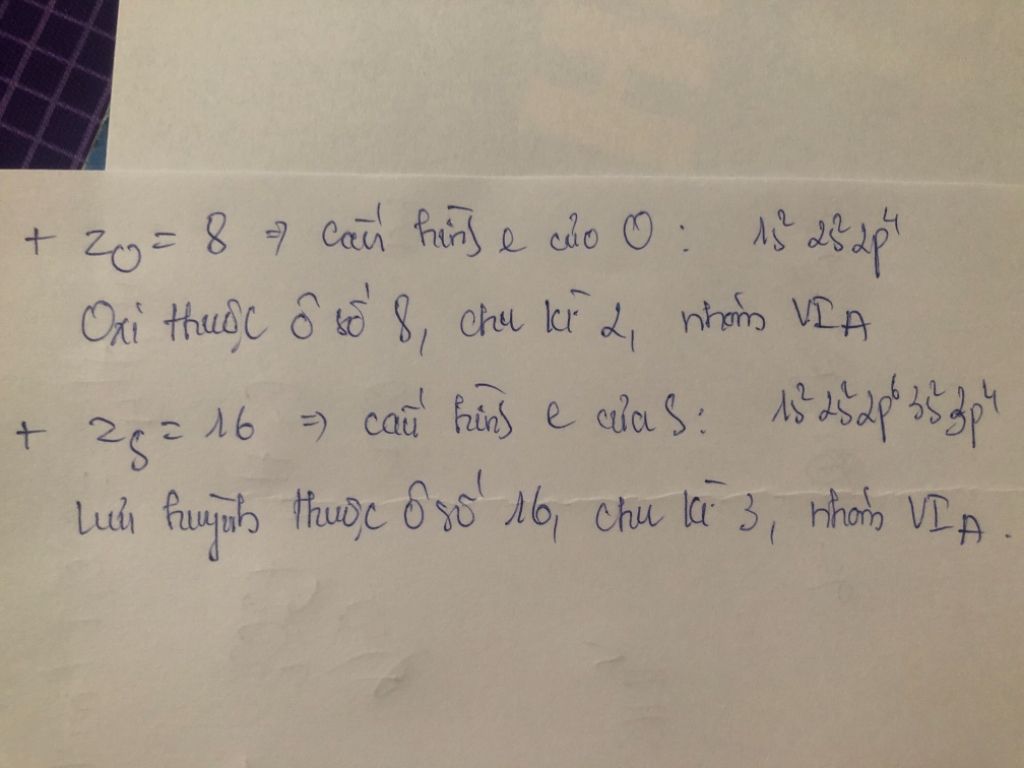 + Z_O = 8 ⇒ cấu hình e của O : 1s² 2s² 2p⁴
Oxi thuộc ô số 8, chu kì 2, nhóm VIA
+ Z_S = 16 ⇒ cấu hình e của S : 1s² 2s² 2p⁶ 3s² 3p⁴
Lưu huỳnh thuộc ô số 16, chu kì 3, nhóm VIA.